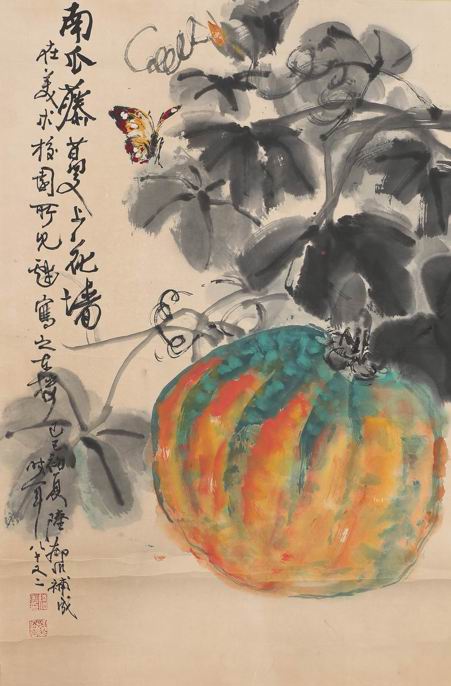 南瓜藤蔓上花墙
在美术校园所见戏写之
己巳初夏陸抑非補成
时年八十又二